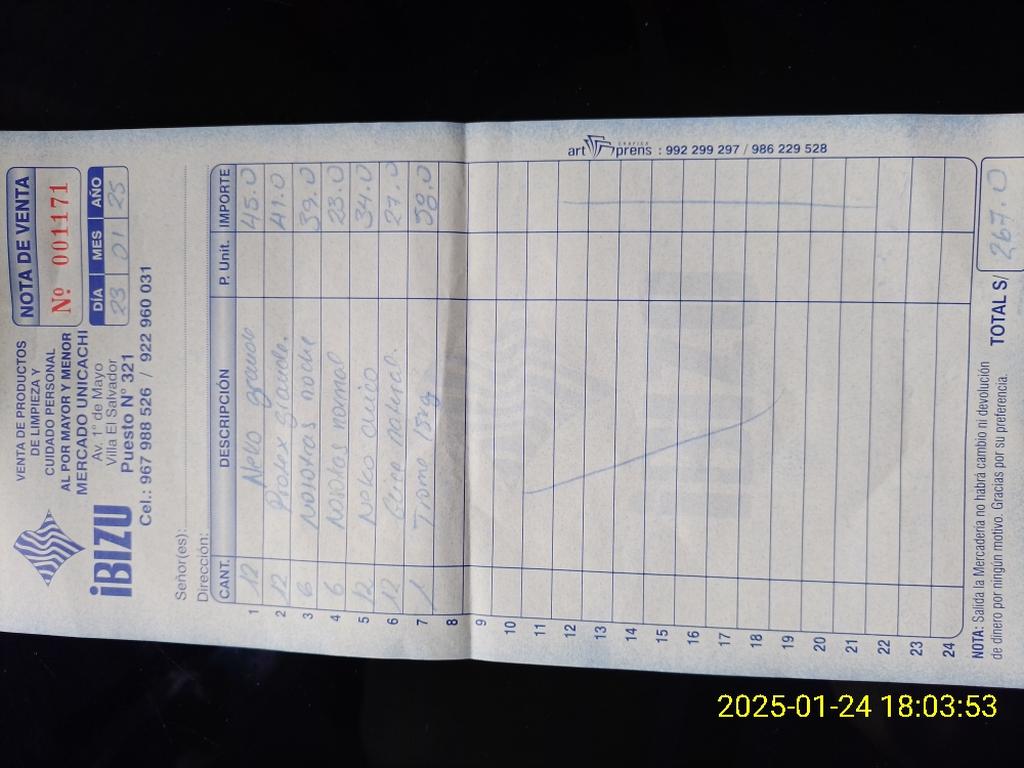 VENTA DE PRODUCTOS
DE LIMPIEZA Y
CUIDADO PERSONAL
AL POR MAYOR Y MENOR
MERCADO UNICACHI
Av. 1° de Mayo
Villa El Salvador
Puesto N° 321
iBIZU
Cel.: 967 988 526 / 922 960 031
NOTA DE VENTA
Nº 001171
DÍA MES AÑO
23 01 25
Señor(es):
Dirección:
CANT. DESCRIPCIÓN P. Unit. IMPORTE
1 12 Neko grande 45.0
2 12 Protex grande. 41.0
3 6 nosotras noche 39.0
4 6 Nosotras normal 23.0
5 12 Neko chico 34.0
6 12 natural. 27.0
7 1 150g 58.0
8
9
10
11
12
13
14
15
16
17
18
19
20
21
22
23
24
art GRAFICA prens : 992 299 297 / 986 229 528
NOTA: Salida la Mercadería no habrá cambio ni devolución
de dinero por ningún motivo. Gracias por su preferencia.
TOTAL S/ 267.0
2025-01-24 18:03:53